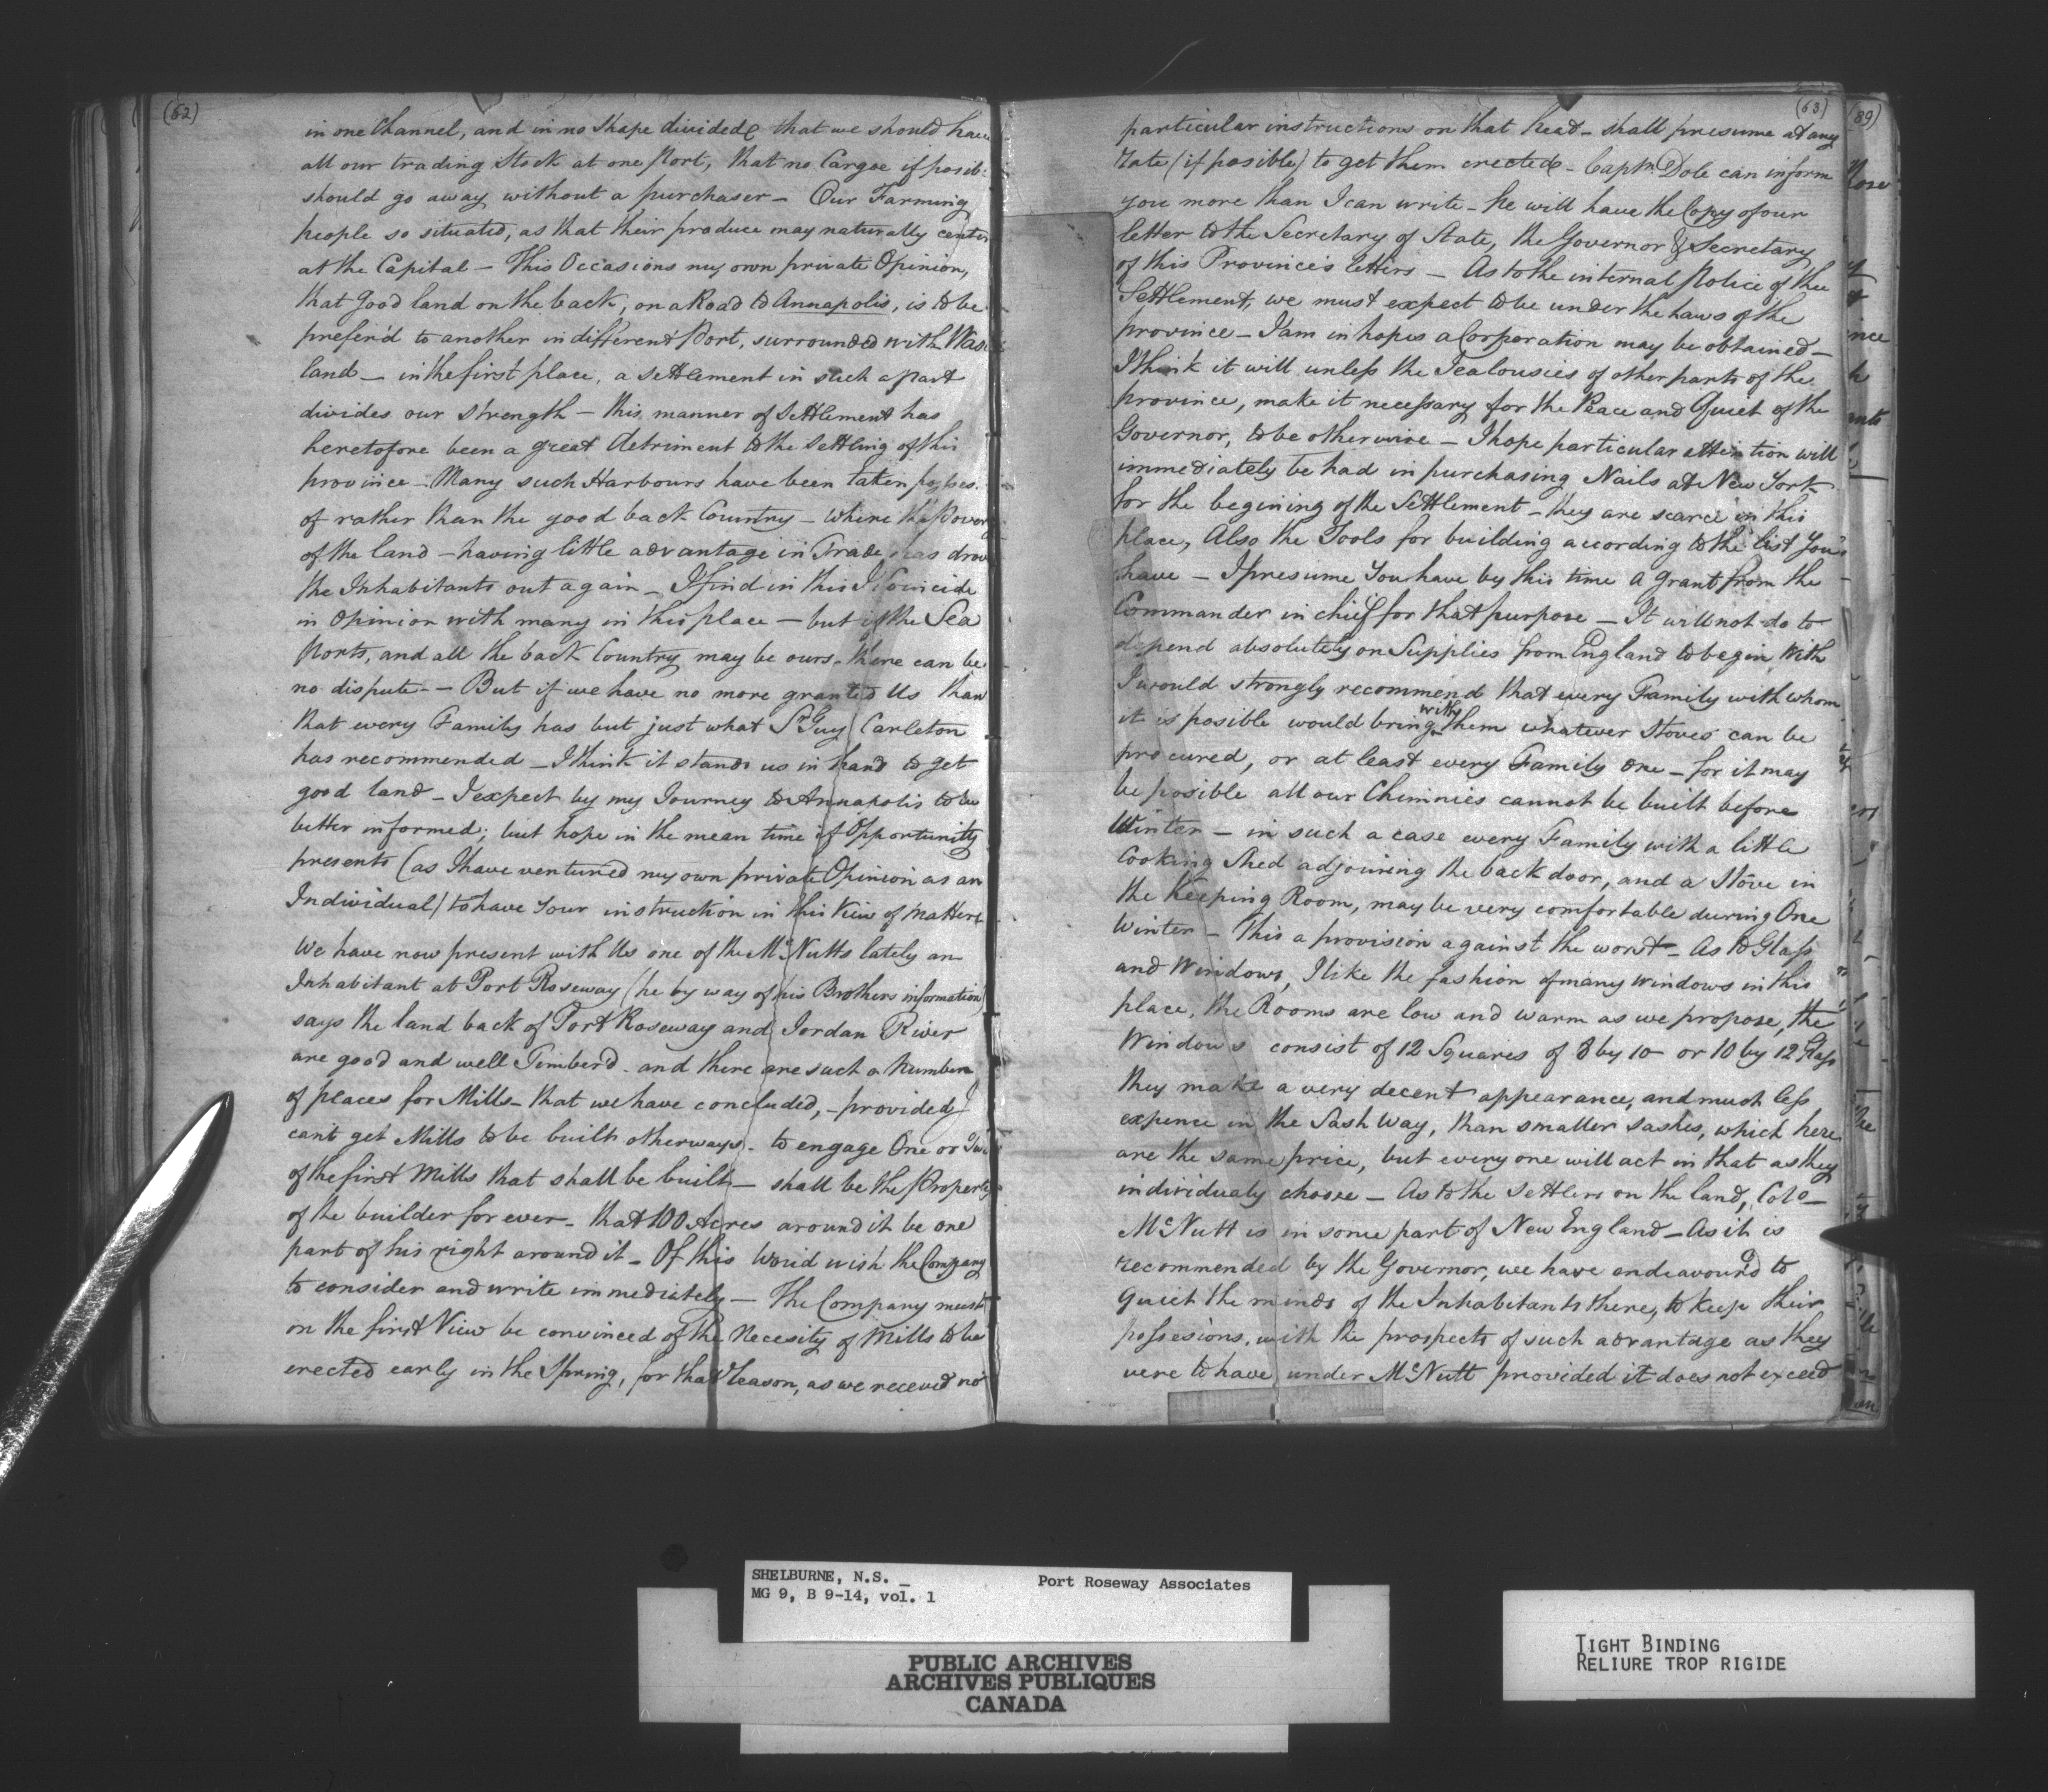 (62)
in one Channel, and in no Shape divided that we should have
all our trading Stock at one Port, that no Cargoe if posib
should go away without a purchaser – Our Farming
people so situated, as that their produce may naturally center
at the Capital – This Occasions my own private Opinion,
that good land on the back, on a Road to Annapolis, is to be
prefer'd to another indifferent Port, surrounded with Was
land – in the first place, a Settlement in such a part
divides our Strength – this manner of Settlement has
heretofore been a great detriment to the Settling of this
province – Many such Harbours have been taken posses.
of rather than the good back Country – where the Pover
of the land – having little advantage in Trade has drov
the Inhabitants out again – I find in this I Coincide
in Opinion with many in this place – but if the Sea
Ports, and all the back Country may be ours – there can be
no dispute – But if we have no more granted Us than
that every Family has but just what Sr. Guy Carleton
has recommended – I think it stands us in hand to get
good land – I expect by my Journey to Annapolis to be
better informed; but hope in the mean time if Opportunity
presents (as I have ventured my own private Opinion as an
Individual) to have your instruction in this View of matters
We have now present with Us one of the Mc.Nutts lately an
Inhabitant at Port Roseway (he by way of his Brothers information)
says the land back of Port Roseway and Jordan River
are good and well Timberd. and there are such a number
of places for Mills – that we have concluded, – provided I
cant get Mills to be built otherways – to engage One or Two
of the first Mills that shall be built – shall be the Property
of the builder for ever – that 100 Acres around it be one
part of his right around it – Of this woud wish the Company
to consider and write immediately – The Company must
on the first View be convinced of the Necesity of Mills to be
erected early in the Spring, for that reason, as we received no
(63)
particular instructions on that head – shall presume at any
rate (if posible) to get them erected – Captn. Dole can inform
you more than I can write – he will have the Copy of our
letter to the Secretary of State, the Governor & Secretary
of this Province's letters – As to the internal Police of the
Settlement, we must expect to be under the Laws of the
province – I am in hopes a Corporation may be obtained –
I think it will unless the Jealousies of other parts of the
province, make it necessary for the Peace and Quiet of the
Governor, to be otherwise – I hope particular attention will
immediately be had in purchasing Nails at New York
for the begining of the Settlement – they are scarce in this
place, Also the Tools for building according to the list You
have – I presume You have by this time a Grant from the
Commander in chief for that purpose – It will not do to
depend absolutely on Supplies from England to begin with
I would strongly recommend that every Family with whom
it is posible would bring with them whatever Stoves can be
procured, or at least every Family One – for it may
be posible all our Chimnies cannot be built before
Winter – in such a case every Family with a little
Cooking Shed adjoining the back door, and a Stove in
the Keeping Room, may be very comfortable during One
Winter – This a provision against the worst – As to Glass
and Windows, I like the fashion of many windows in this
place, the Rooms are low and warm as we propose, the
Windows consist of 12 Squares of 8 by 10 – or 10 by 12 Glass
they make a very decent appearance, and much less
expence in the Sash Way, than smaller sashes, which here
are the same price, but every one will act in that as they
individualy choose – As to the Settlers on the land, Colo –
Mc.Nutt is in some part of New England – As it is
recommended by the Governor, we have endeavourd to
quiet the minds of the Inhabitants there, to keep their
possesions, with the prospects of such advantage as they
were to have under Mc.Nutt provided it does not exceed
(89)
SHELBURNE, N.S. _ Port Roseway Associates
MG 9, B 9-14, vol. 1
PUBLIC ARCHIVES
ARCHIVES PUBLIQUES
CANADA
TIGHT BINDING
RELIURE TROP RIGIDE